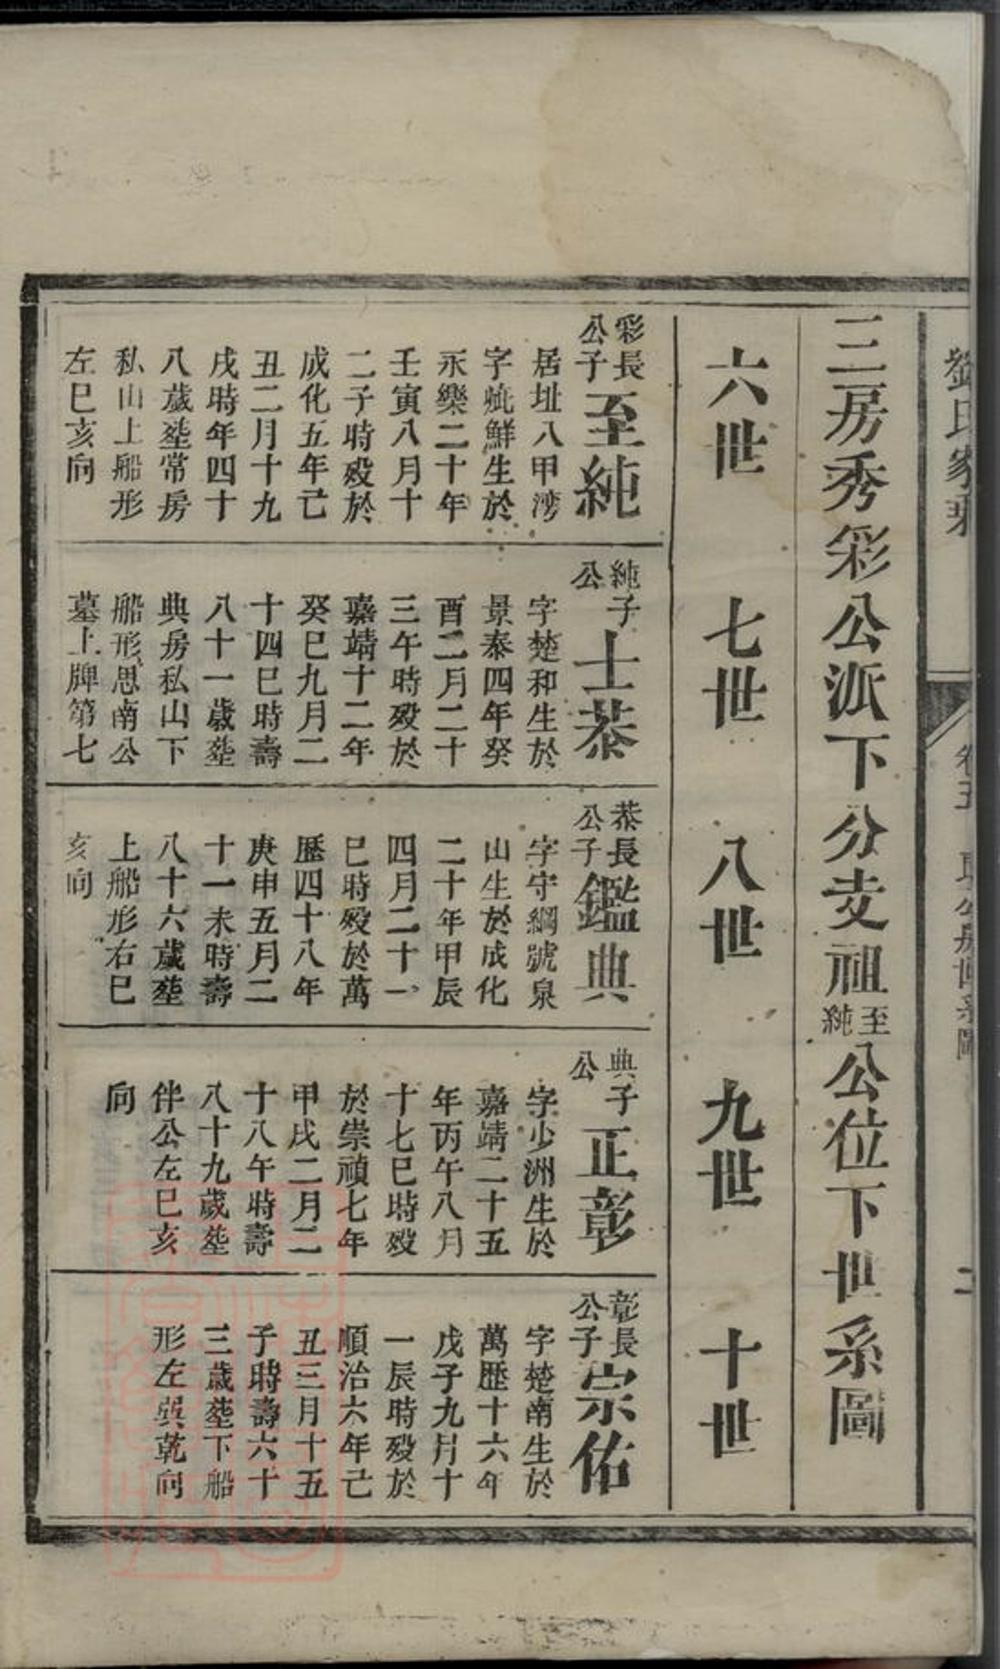 劉氏家乘
卷五
二
三房秀彩公派下分支祖至純公位下世系圖
六世 七世 八世 九世 十世
彩長公子至純
居址八甲湾
字 鮮生於
永樂二十年
壬寅八月十
二子時殁於
成化五年己
丑二月十九
戌時年四十
八歲塟常房
私山上船形
左巳亥向
純公子士恭
字楚和生於
景泰四年癸
酉二月二十
三午時殁於
嘉靖十二年
癸巳九月二
十四巳時壽
八十一歲塟
典房私山下
船形思南公
墓上牌第七
恭長公子鑑典
字守綱號泉
山生於成化
二十年甲辰
四月二十一
巳時殁於萬
歷四十八年
庚申五月二
十一未時壽
八十六歲塟
上船形右巳
亥向
典公子正彰
字少洲生於
嘉靖二十五
年丙午八月
十七巳時殁
於崇禎七年
甲戌二月二
十八午時壽
八十九歲塟
伴公左巳亥
向
彰長公子宗佑
字楚南生於
萬歷十六年
戊子九月十
一辰時殁於
順治六年己
丑三月十五
子時壽六十
三歲塟下船
形左巽乾向